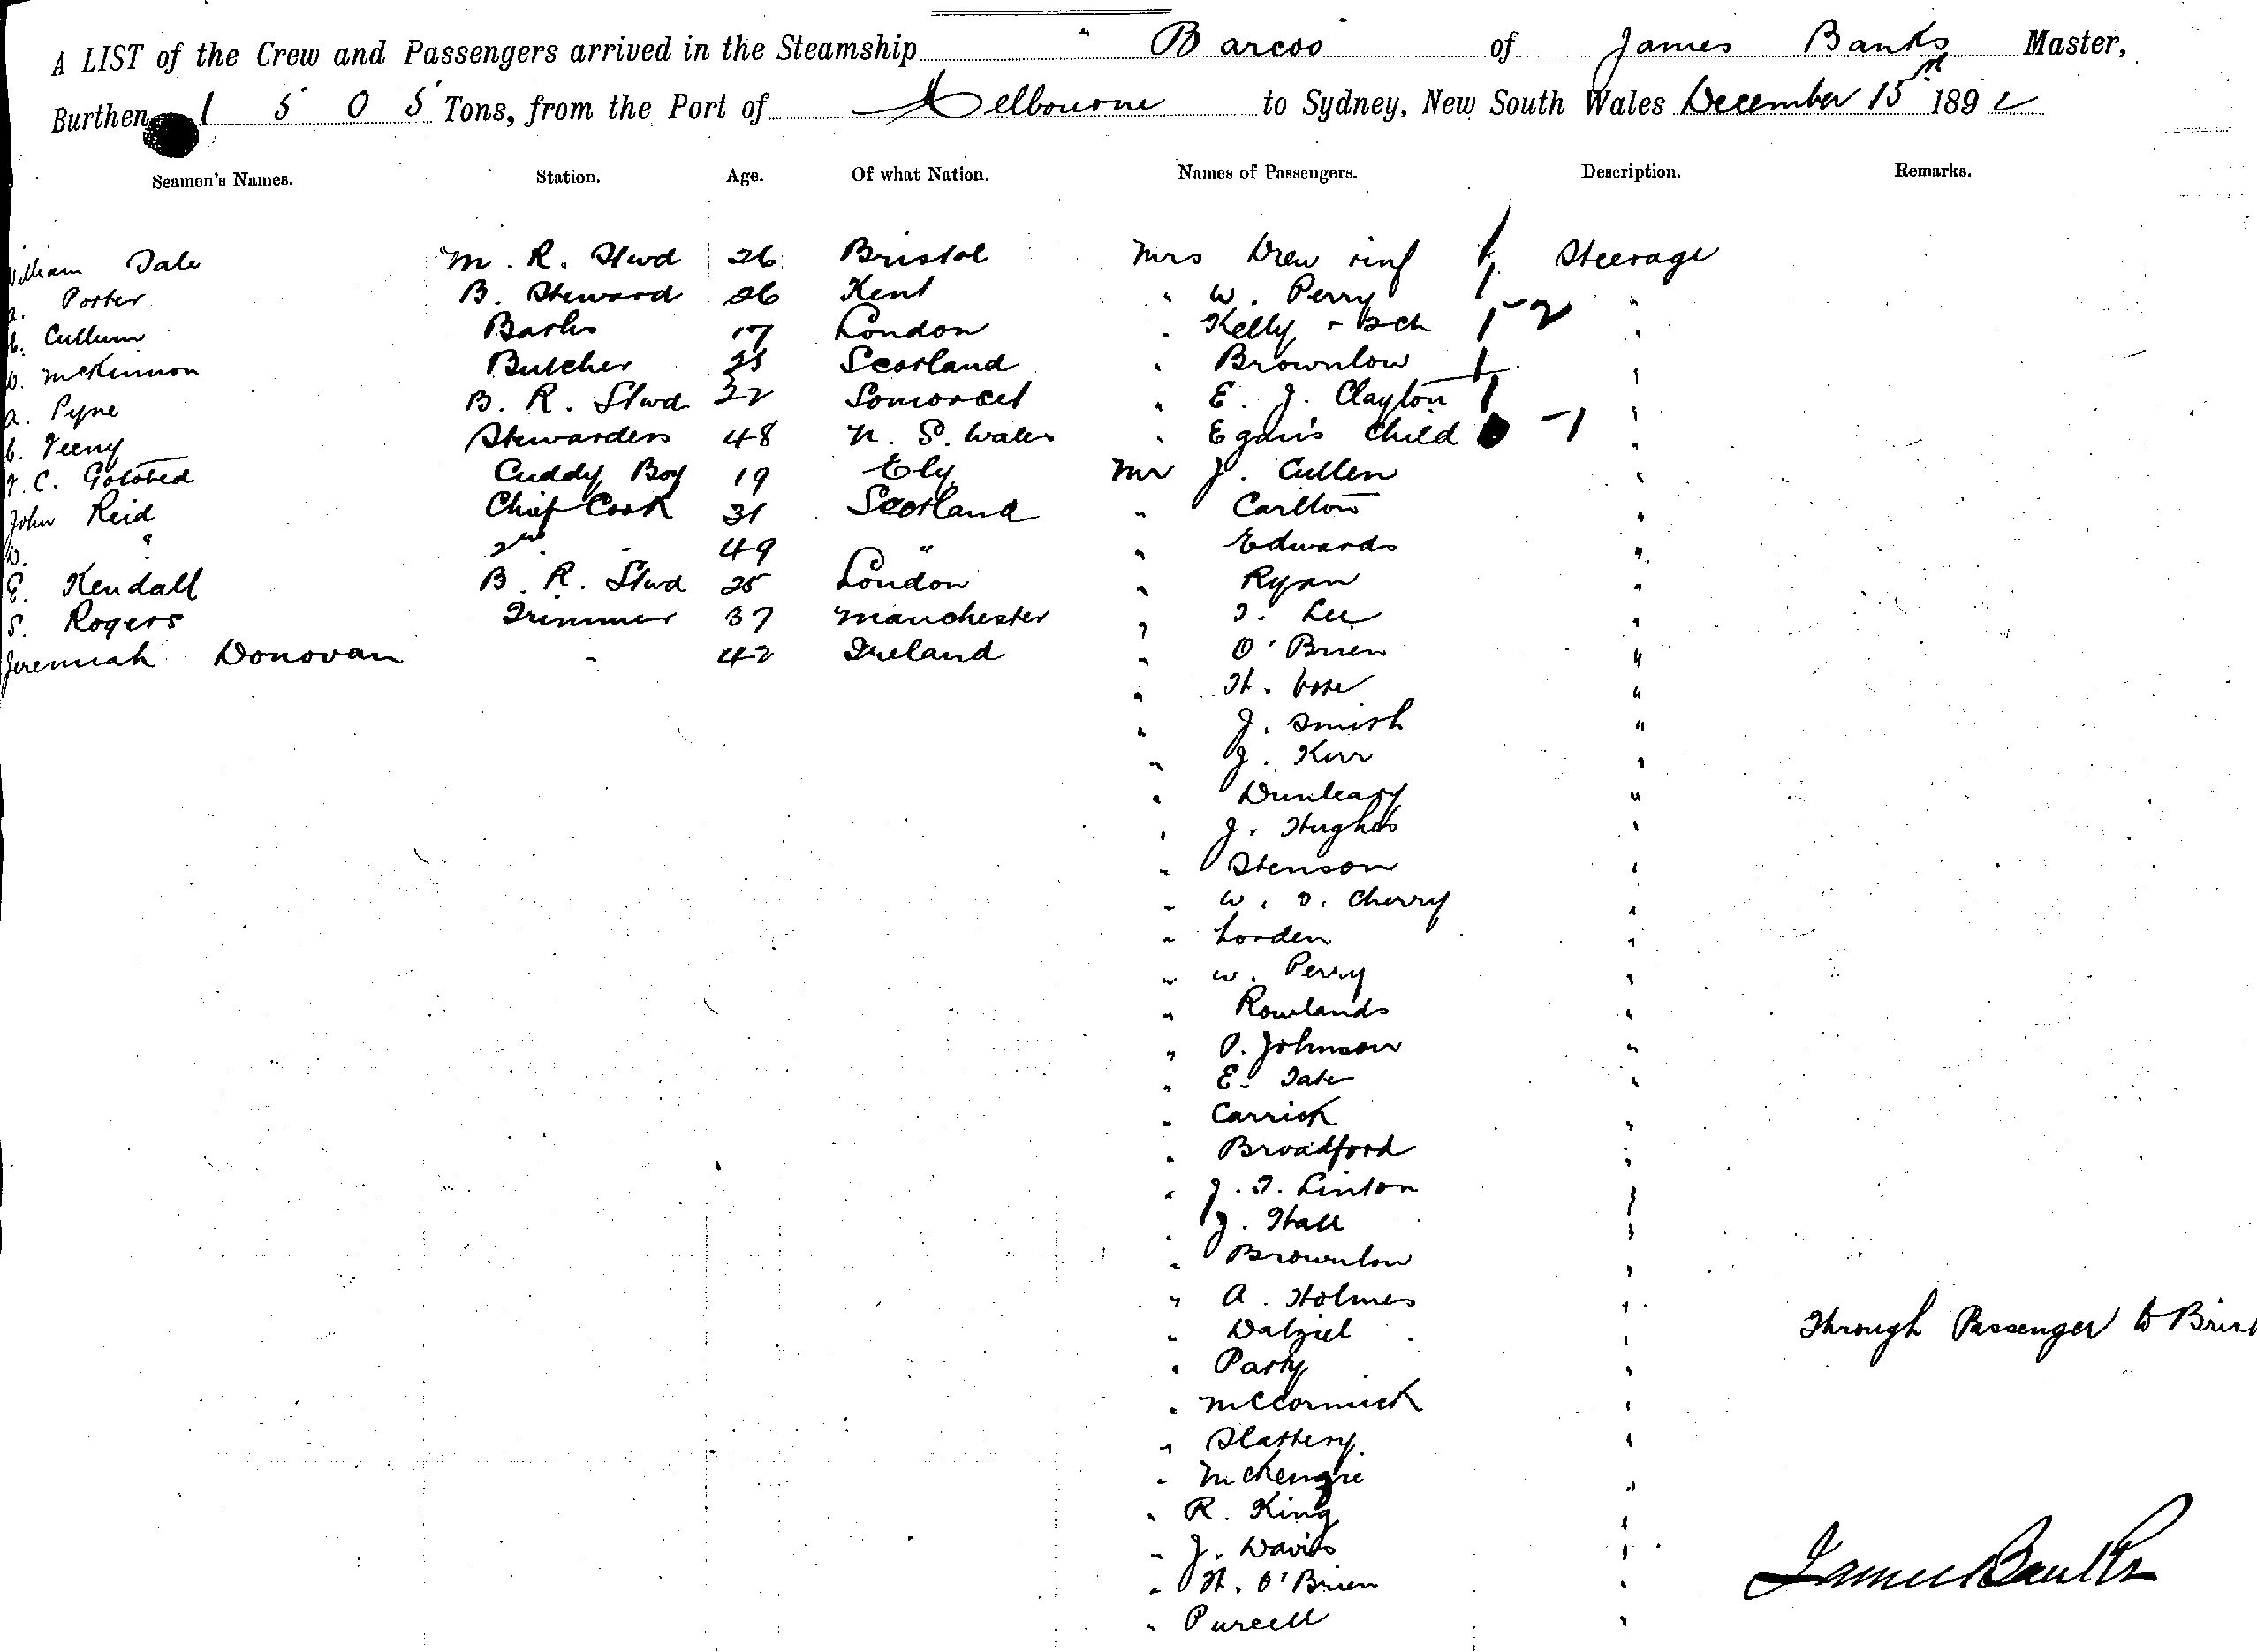 A LIST of the Crew and Passengers arrived in the Steamship " Barcoo of James Banks Master,
Burthen 1505 Tons, from the Port of Melbourne to Sydney, New South Wales December 15 189
Seamen's Names. Station. Age. Of what Nation. Names of Passengers. Description. Remarks.
William M. R. Stwd 26 Bristol Mrs Drew Steerage
Porter B. Steward 26 Kent " W. Perry "
Cullum 17 London " Kelly + 2 ch 1-2 "
McKinnon Butcher Scotland " Brownlow 1 "
A. Pyne B. R. Stwd 22 Somerset " E. J. Clayton 1 "
Stewardess 48 N. S. Wales " Egan's Child -1 "
Cuddy Boy 19 Ely Mr J. Cullen "
John Reid Chief Cook 31 Scotland " Carlton "
" 2nd " 49 " " Edwards "
E. Kendall B. R. Stwd 25 London " Ryan "
S. Rogers Trimmer 37 Manchester " T. Lee "
Jeremiah Donovan " 42 Ireland " O'Brien "
" "
" J. Smith "
" J. Kerr "
" Dunleavy "
" J. Hughes "
" Stenson "
" Cherry "
" Lorden "
" W. Perry "
" Rowlands "
" P. Johnson "
" E. "
" Carrick "
" Broadford "
" J. T. Linton "
" J. Hall "
" Brownlow "
" A. Holmes "
" Dalziel " Through Passenger to
" "
" McCormick "
" Slattery "
" McKenzie "
" R. King "
" J. Davis "
" O'Brien "
" Purcell "
James Banks